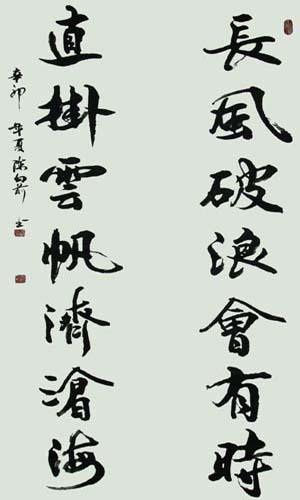 長風破浪會有時
直掛雲帆濟滄海
辛卯 年夏陈向前 书